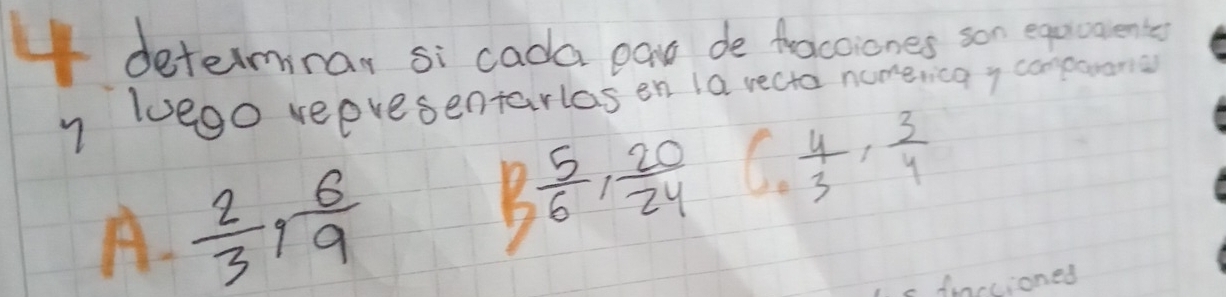 4. determinar si cada par de fracciones son equivalentes
y luego representarlas en la recta numerica y compararlas
A. 2/3, 6/9 B 5/6, 20/24 C. 4/3, 3/4
fracciones